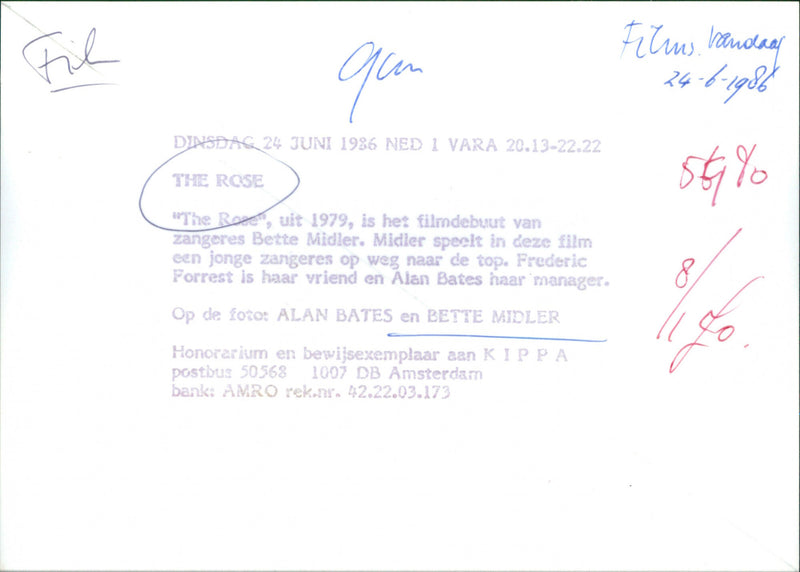 Film
Films Vandaag
24-6-1986
DINSDAG 24 JUNI 1986 NED 1 VARA 20.13-22.22
THE ROSE
"The Rose", uit 1979, is het filmdebuut van
zangeres Bette Midler. Midler speelt in deze film
een jonge zangeres op weg naar de top. Frederic
Forrest is haar vriend en Alan Bates haar manager.
Op de foto: ALAN BATES en BETTE MIDLER
Honorarium en bewijsexemplaar aan K I P P A
postbus 50568 1007 DB Amsterdam
bank: AMRO rek.nr. 42.22.03.173